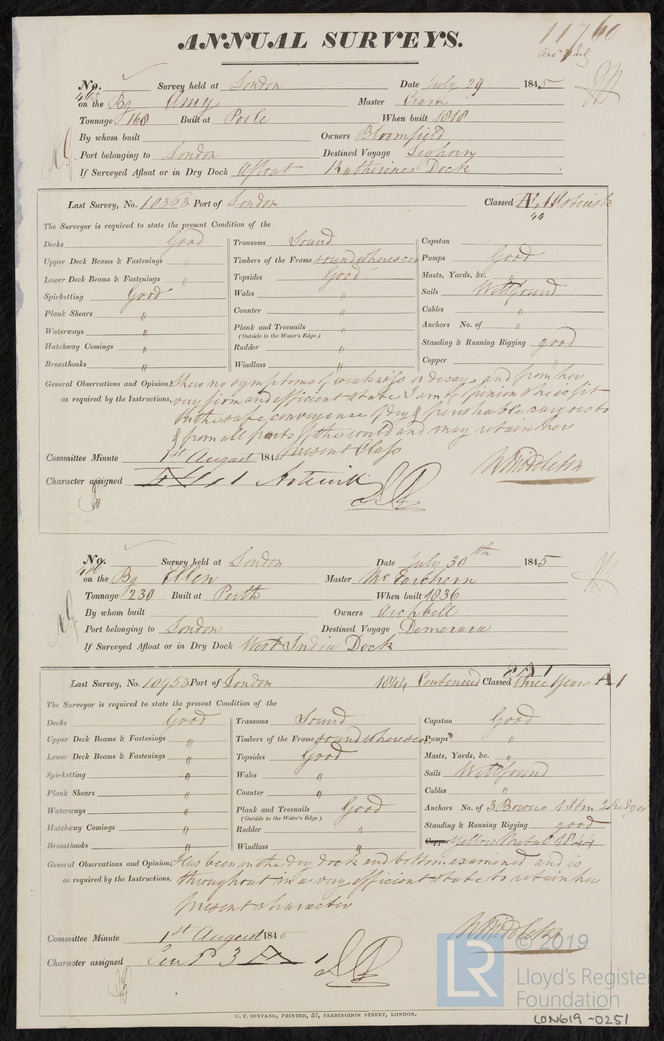 11760
ANNUAL SURVEYS.
No. Survey held at London Date July 29 1845
on the Bg Amy Master
Tonnage 168 Built at Poole When built 1818
By whom built Owners Bloomfield
Port belonging to London Destined Voyage Leghorn
If Surveyed Afloat or in Dry Dock Afloat Katherines Dock
Last Survey, No. 10353 Port of London Classed Æ 1
The Surveyor is required to state the present Condition of the
Decks Good Transoms Sound Capstan
Upper Deck Beams & Fastenings " Timbers of the Frame sound where seen Pumps Good
Lower Deck Beams & Fastenings " Topsides Good Masts, Yards, &c. "
Spirketting Good Wales " Sails Well found
Plank Shears " Counter " Cables "
Waterways " Plank and Treenails " Anchors No. of "
(Outside to the Water's Edge.)
Hatchway Comings " Rudder " Standing & Running Rigging good
Breasthooks " Windlass " Copper "
General Observations and Opinion Shews no symptoms of weakness or decay and from her
as required by the Instructions, very firm and efficient state I am of opinion she is fit
for the safe conveyance of dry & perishable cargoes to
& from all parts of the world and may retain her
Committee Minute 1st August 1845 present Class
W Middleton
Character assigned
No. Survey held at London Date July 30th 1845
on the Bg Ellen Master McEachern
Tonnage 230 Built at Perth When built 1836
By whom built Owners Archbell
Port belonging to London Destined Voyage Demerara
If Surveyed Afloat or in Dry Dock West India Dock
Last Survey, No. 10953 Port of London 1844 Condensed Classed three Years A1
The Surveyor is required to state the present Condition of the
Decks Good Transoms Sound Capstan Good
Upper Deck Beams & Fastenings " Timbers of the Frame sound where seen Pumps "
Lower Deck Beams & Fastenings " Topsides Good Masts, Yards, &c. "
Spirketting " Wales " Sails Well found
Plank Shears " Counter " Cables "
Waterways " Plank and Treenails Good Anchors No. of 3 Bowers 1 Strm 2 Kedges
(Outside to the Water's Edge.)
Hatchway Comings " Rudder " Standing & Running Rigging good
Breasthooks " Windlass " Copper Yellow Metal 1844
General Observations and Opinion Has been in the dry dock and bottom examined and is
as required by the Instructions, throughout in a very efficient state to retain her
present character
Committee Minute 1st August 1845
W Middleton
Character assigned
© 2019
LR
Lloyd's Register
Foundation
C. F. SEYFANG, PRINTER, 57, FARRINGDON STREET, LONDON.
LON619-0251